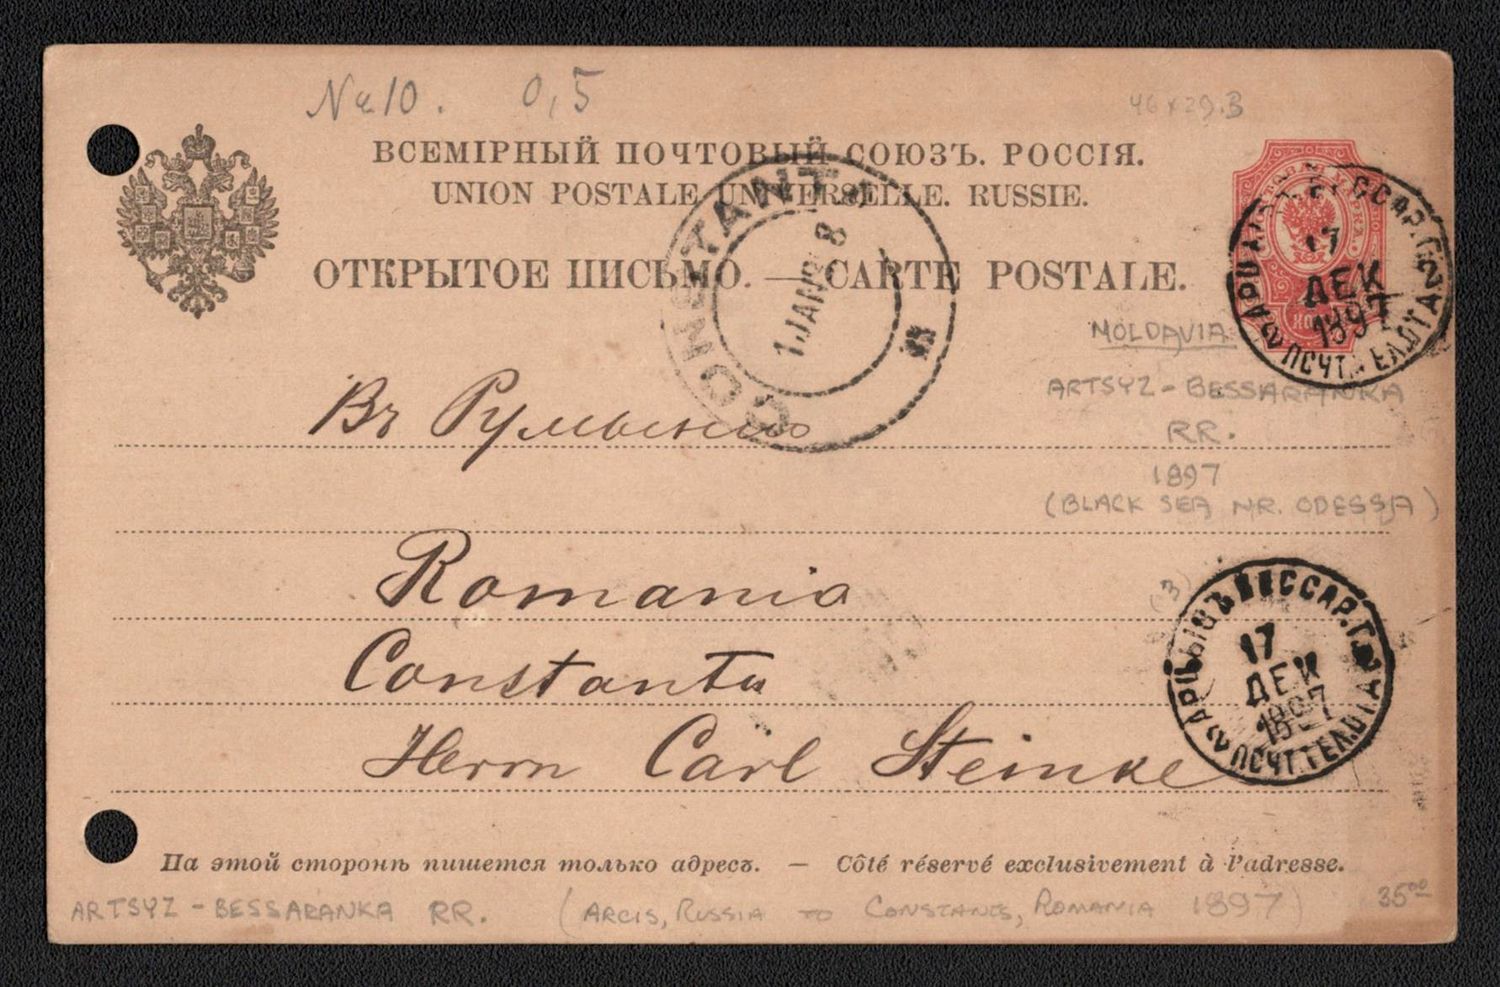 № 10. 0,5
46 x 29.3
ВСЕМІРНЫЙ ПОЧТОВЫЙ СОЮЗЪ. РОССІЯ.
UNION POSTALE UNIVERSELLE. RUSSIE.
ОТКРЫТОЕ ПИСЬМО. — CARTE POSTALE.
CONSTANT
1 JAN 98
АРЦЫЗЪ БЕССАР. Г.
17
ДЕК
1897
ПОЧТ. ТЕЛ. ОТД.
MOLDAVIA
ARTSYZ - BESSARANKA
RR.
1897
(BLACK SEA NR. ODESSA)
Въ Румынию
Romania
Constanta
Herrn Carl Steinke
(3)
АРЦЫЗЪ БЕССАР. Г.
17
ДЕК
1897
ПОЧТ. ТЕЛ. ОТД.
На этой сторонѣ пишется только адресъ. — Côté réservé exclusivement à l'adresse.
ARTSYZ - BESSARANKA RR. (ARCIS, RUSSIA TO CONSTANTS, ROMANIA 1897) 35⁰⁰